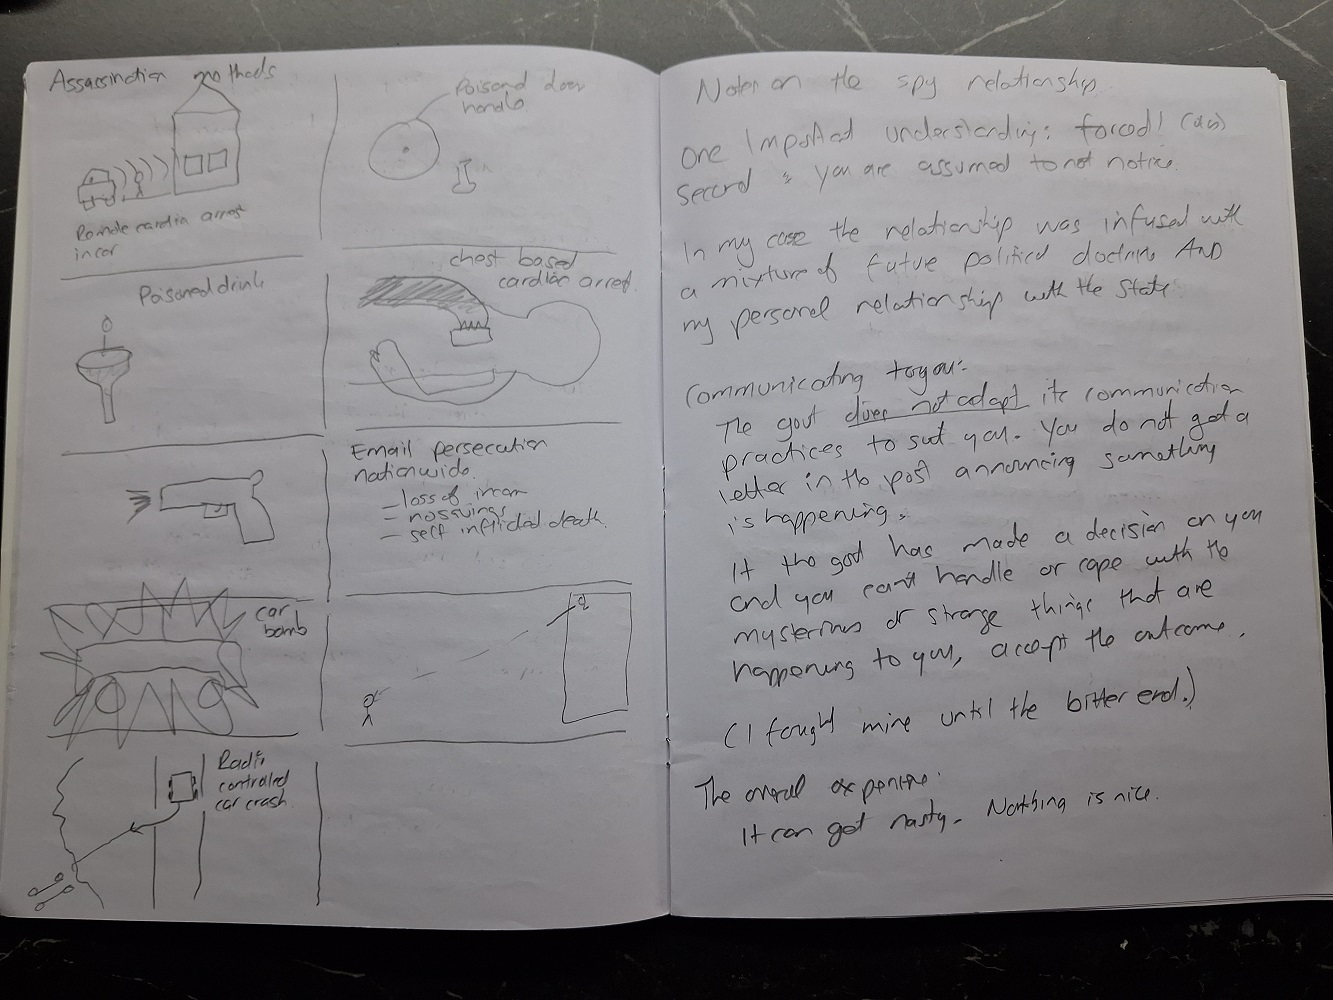 Assassination methods
Remote cardiac arrest
in car
Poisoned door
handle
Poisoned drink
chest based
cardiac arrest
Email persecution
nationwide
- loss of incom
- no savings
- self inflicted death
car
bomb
Radio
controlled
car crash
Notes on the spy relationship
One important understanding: forced!
second: you are assumed to not notice.
In my case the relationship was infused with
a mixture of future political doctrine AND
my personal relationship with the State
Communicating to you:-
The govt does not adapt its communication
practices to suit you. You do not get a
letter in the post announcing something
is happening.
If the govt has made a decision on you
and you can't handle or cope with the
mysterious or strange things that are
happening to you, accept the outcome.
(I fought mine until the bitter end.)
The overall experience:
It can get nasty. Nothing is nice.